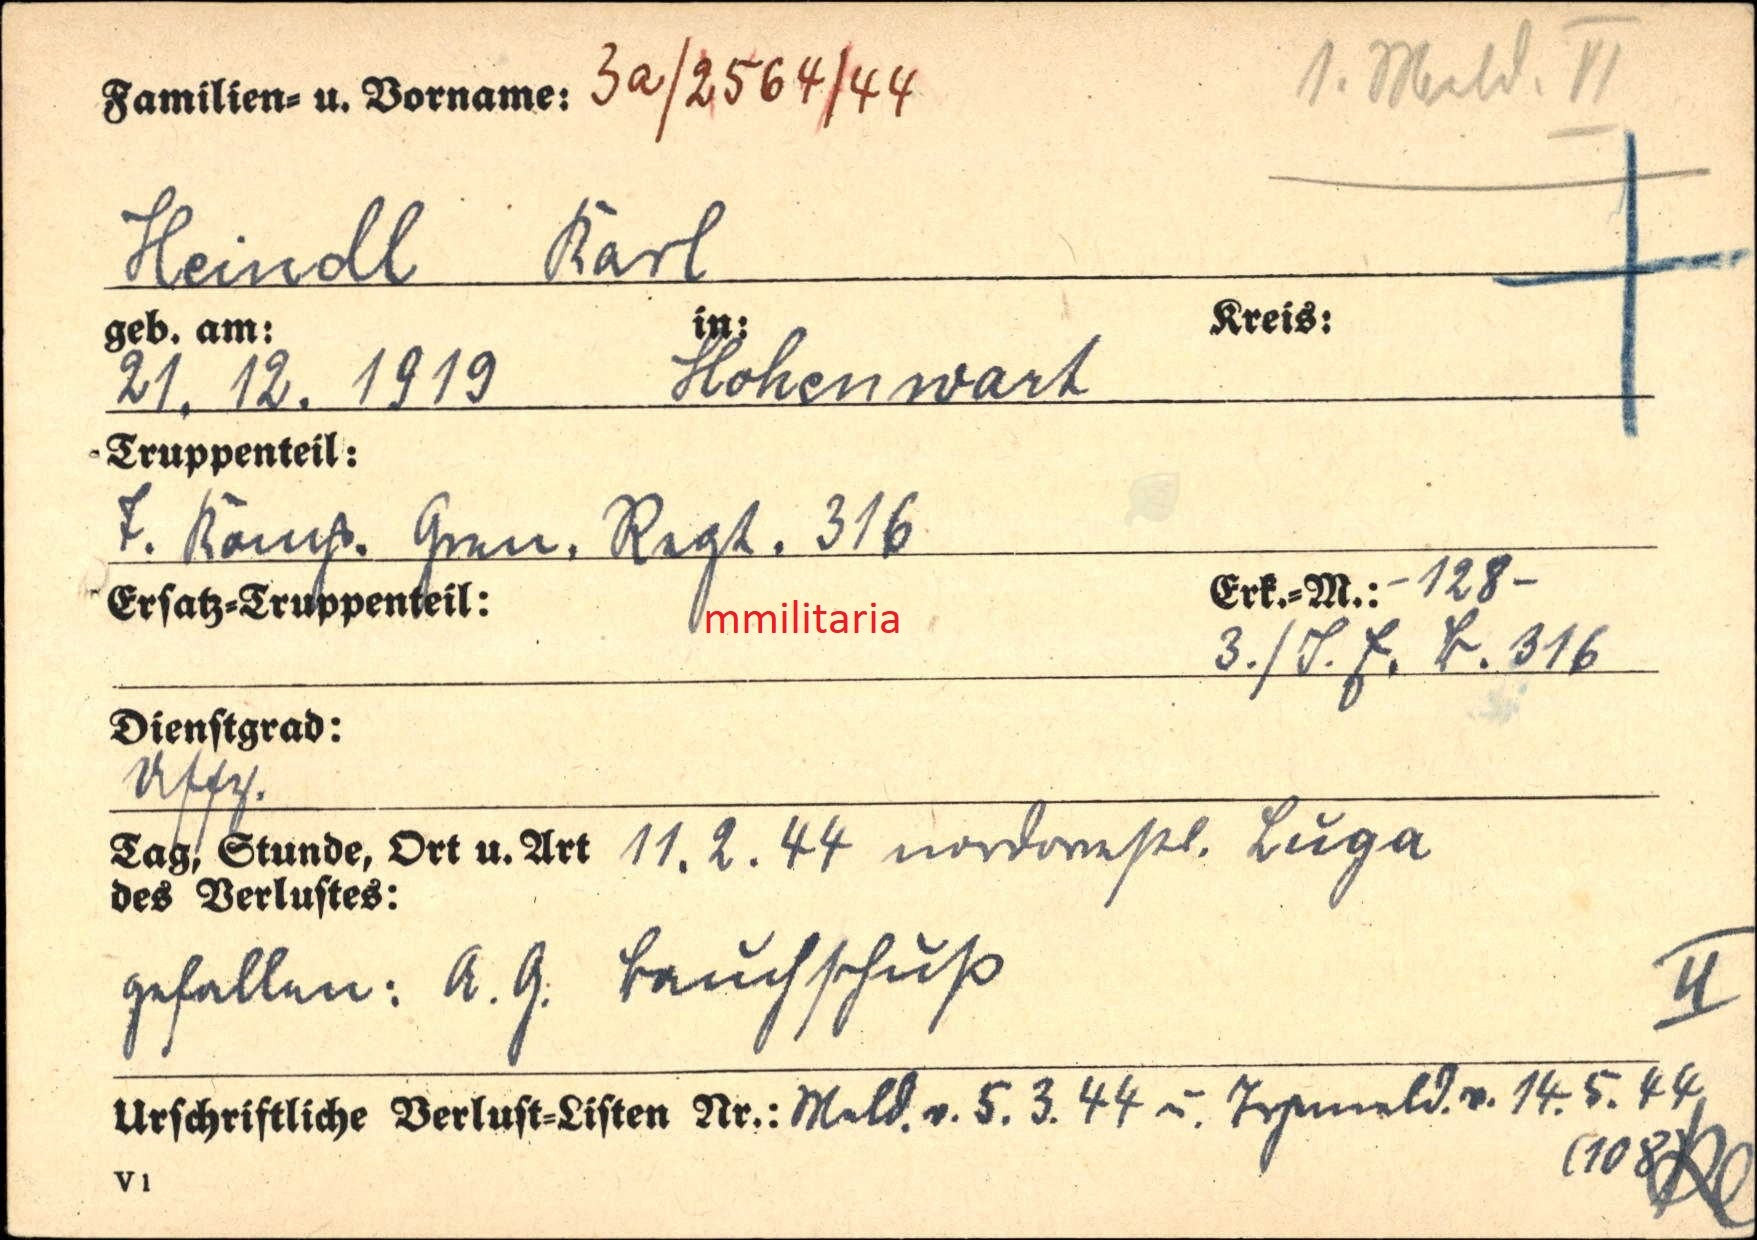 Familien- u. Vorname: 3a/2564/44
1. Meld. VI
Heindl Karl
geb. am: in: Kreis:
21. 12. 1919 Hohenwart
Truppenteil:
7. Komp. Gren. Regt. 316
Ersatz-Truppenteil: Erk.-M.: -128-
mmilitaria
3./J. E. B. 316
Dienstgrad:
Uffz.
Tag, Stunde, Ort u. Art 11. 2. 44 nordwestl. Luga
des Verlustes:
gefallen: A. G. Bauchschuß
II
Urschriftliche Verlust-Listen Nr.: Meld. v. 5. 3. 44 u. v. 14. 5. 44
(108)
V1